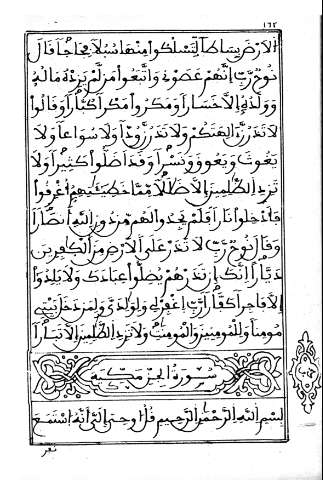 ١٦٢
الارض بساطا لتسلكوا منها سبلا فجاجا قال
نوح رب انهم عصوني واتبعوا من لم يزده ماله
وولده إلا خسارا ومكروا مكرا كبارا وقالوا
لا تذرن ءالهتكم ولا تذرن ودا ولا سواعا ولا
يغوث ويعوق ونسرا وقد اضلوا كثيرا ولا
تزد الظلمين إلا ضللا مما خطيئتهم اغرقوا
فادخلوا نارا فلم يجدوا لهم من دون الله انصارا
وقال نوح رب لا تذر على الارض من الكفرين
ديارا انك ان تذرهم يضلوا عبادك ولا يلدوا
إلا فاجرا كفارا رب اغفر لي ولوالدي ولمن دخل بيتي
مومنا وللمومنين والمومنت ولا تزد الظلمين الا تبارا
سورة الجن مكية
بسم الله الرحمن الرحيم قل اوحي الي انه استمع
نفر